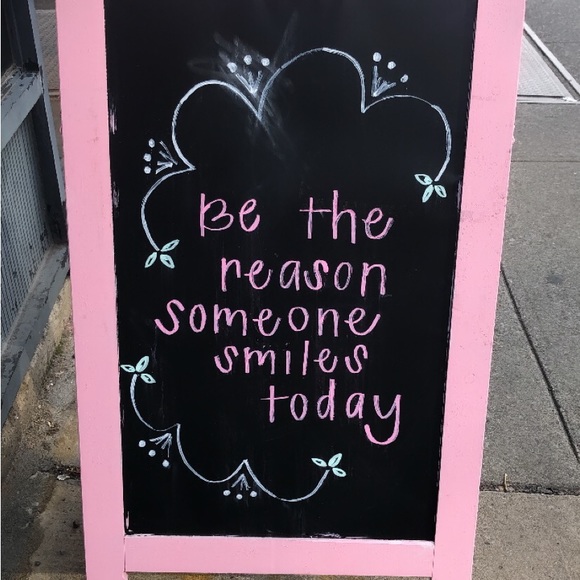 Be the
reason
someone
smiles
today